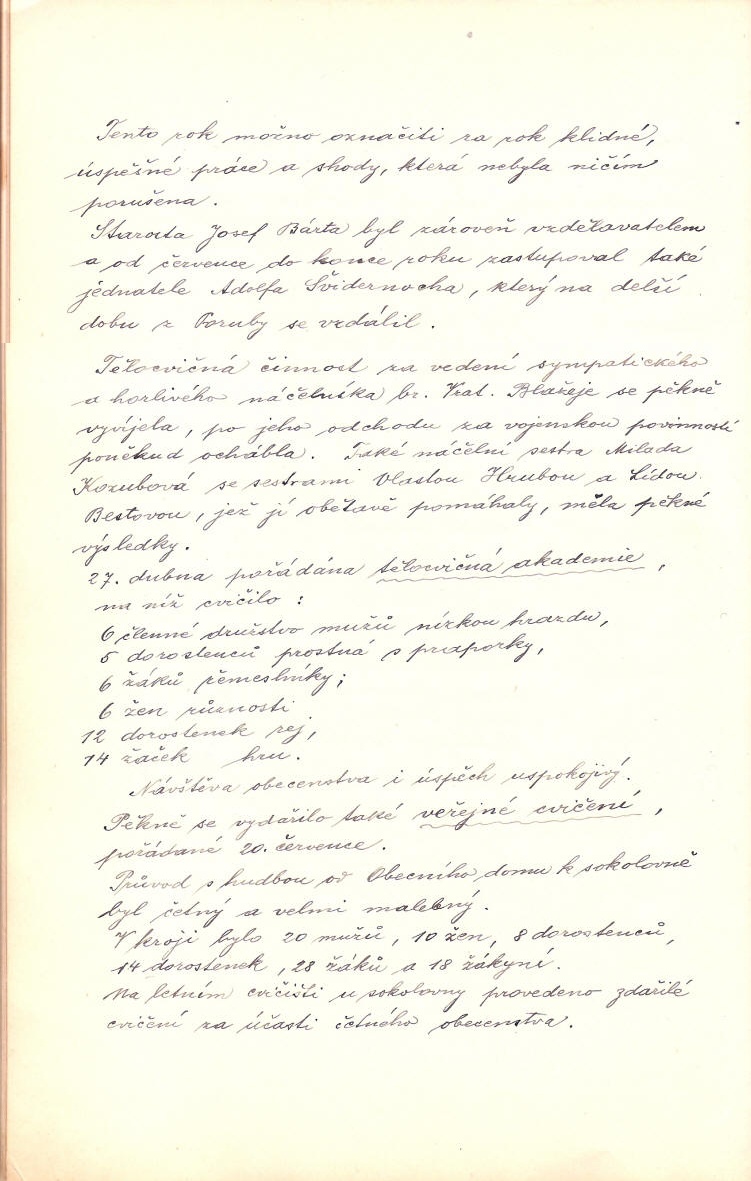 Tento rok možno označiti za rok klidné,
úspěšné práce a shody, která nebyla ničím
porušena.
Starosta Josef Bárta byl zároveň vzdělavatelem
a od července do konce roku zastupoval také
jednatele Adolfa Švidernocha, který na delší
dobu z Poruby se vzdálil.
Tělocvičná činnost za vedení sympatického
a horlivého náčelníka br. Vrat. Blažeje se pěkně
vyvíjela, po jeho odchodu za vojenskou povinností
poněkud ochábla. Také náčelní sestra Milada
Kozubová se sestrami Vlastou Hrubou a Lídou
Bestovou, jež jí obětavě pomáhaly, měla pěkné
výsledky.
27. dubna pořádána tělocvičná akademie,
na níž cvičilo :
6 členné družstvo mužů nízkou hrazdu,
5 dorostenců prostná s praporky,
6 žáků řemeslníky;
6 žen různosti
12 dorostenek rej,
14 žaček hru.
Návštěva obecenstva i úspěch uspokojivý.
Pěkně se vydařilo také veřejné cvičení,
pořádané 20. července.
Průvod s hudbou od Obecního domu k sokolovně
byl četný a velmi malebný.
V kroji bylo 20 mužů, 10 žen, 8 dorostenců,
14 dorostenek, 28 žáků a 18 žákyní.
Na letním cvičišti u sokolovny provedeno zdařilé
cvičení za účasti četného obecenstva.